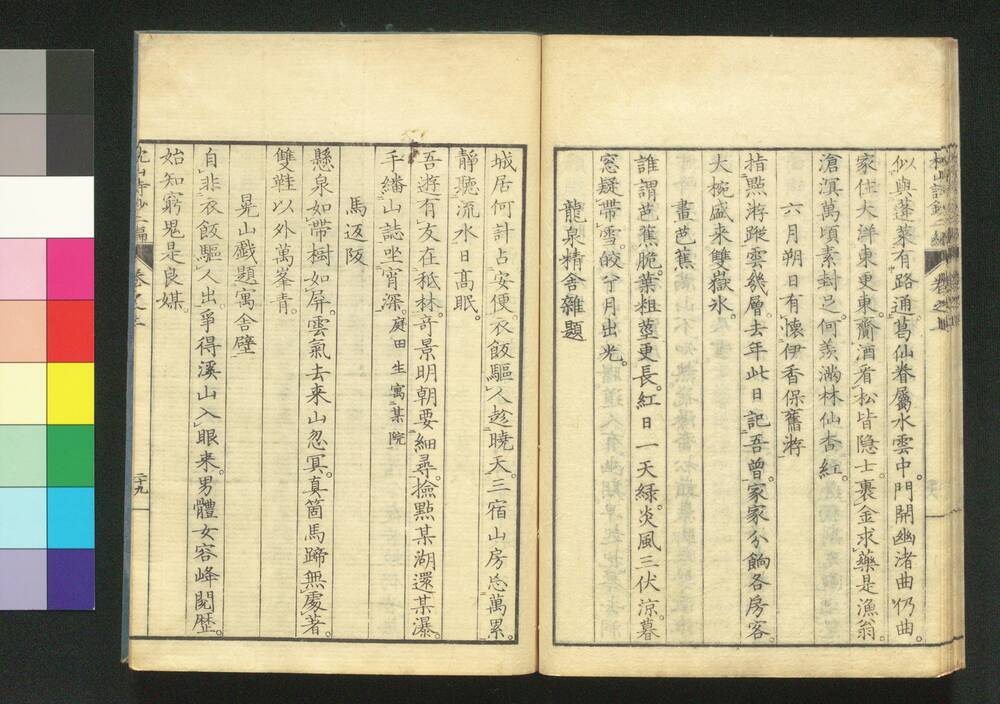 似與蓬萊有路通。葛仙眷屬水雲中。門開幽渚曲仍曲。
家住大洋東更東。齎酒看松皆隱士。裹金求藥是漁翁。
滄溟萬頃素封足。何羨滿林仙杏紅。
六月朔日有懷伊香保舊游
指點游蹤雲幾層。去年此日記吾曾。家家分餉各房客。
大椀盛来雙嶽氷。
畫芭蕉
誰謂芭蕉脆。葉粗莖更長。紅日一天緑。炎風三伏涼。暮
窓疑帶雪。皎兮月出光。
龍泉精舍雜題
城居何計占安便。衣飯驅人趁曉天。三宿山房忘萬累。
靜聽流水日高眠。
吾遊有友在秪林。奇景明朝要細尋。撿點某湖還某瀑。
手繙山誌坐宵深。庭田生寓某院
馬返阪
懸泉如帶樹如屏。雲氣去来山忽冥。真箇馬蹄無處著。
雙鞋以外萬峯青。
晃山戲題寓舍壁
自非衣飯驅人出。爭得溪山入眼来。男體女容峰閱歴。
始知窮鬼是良媒。
卷之二
二十九